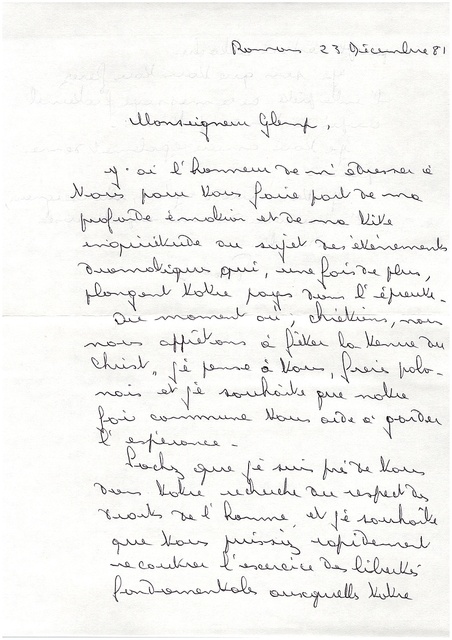 Romans 23 Décembre 81
Monseigneur Glemp,
J'ai l'honneur de m'adresser à
Vous pour Vous faire part de ma
profonde émotion et de ma vive
inquiétude au sujet des évènements
dramatiques qui, une fois de plus,
plongent Votre pays dans l'épreuve.
Au moment où, chrétiens, nous
nous apprêtons à fêter la venue du
Christ, je pense à Vous, frères polo-
nais et je souhaite que notre
foi commune Vous aide à garder
l'espérance.
Sachez que je suis près de Vous
dans Votre recherche du respect des
droits de l'homme, et je souhaite
que Vous puissiez rapidement
recouvrer l'exercice des libertés
fondamentales auxquelles Votre